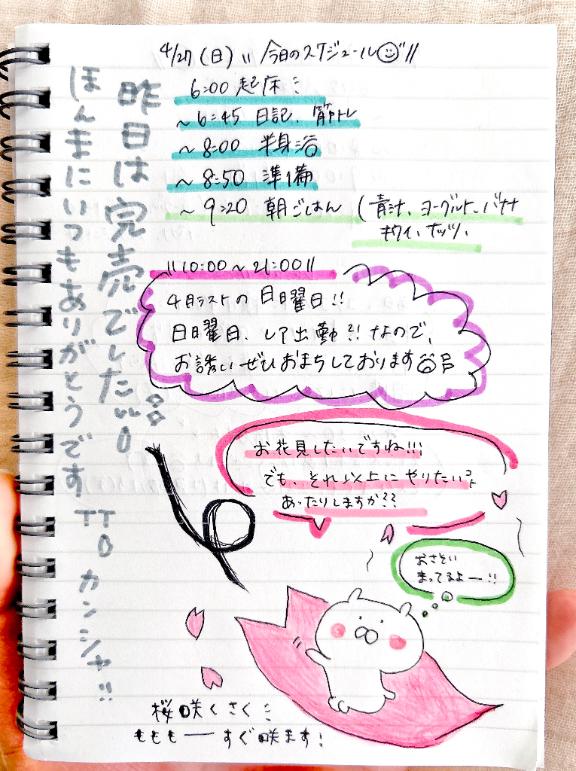 4/27(日) 〃 今日のスケジュール〃
6:00 起床:
~6:45 日記、筋トレ
~8:00 半身浴
~8:50 準備
~9:20 朝ごはん (青汁、ヨーグルト、バナナ
キウイ、ナッツ、
〃10:00~21:00〃
4月ラストの日曜日!!
日曜日、レア出勤!!なので、
お誘いぜひおまちしております
お花見したいですね!!!
でも、それ以上にやりたいコト
あったりしますか??
おさそい
まってるよー!!
桜咲くさく:
ももも一すぐ咲ます!
昨日は完売でした!!。
ほんまにいつもありがとうです TT。カンシャ!!